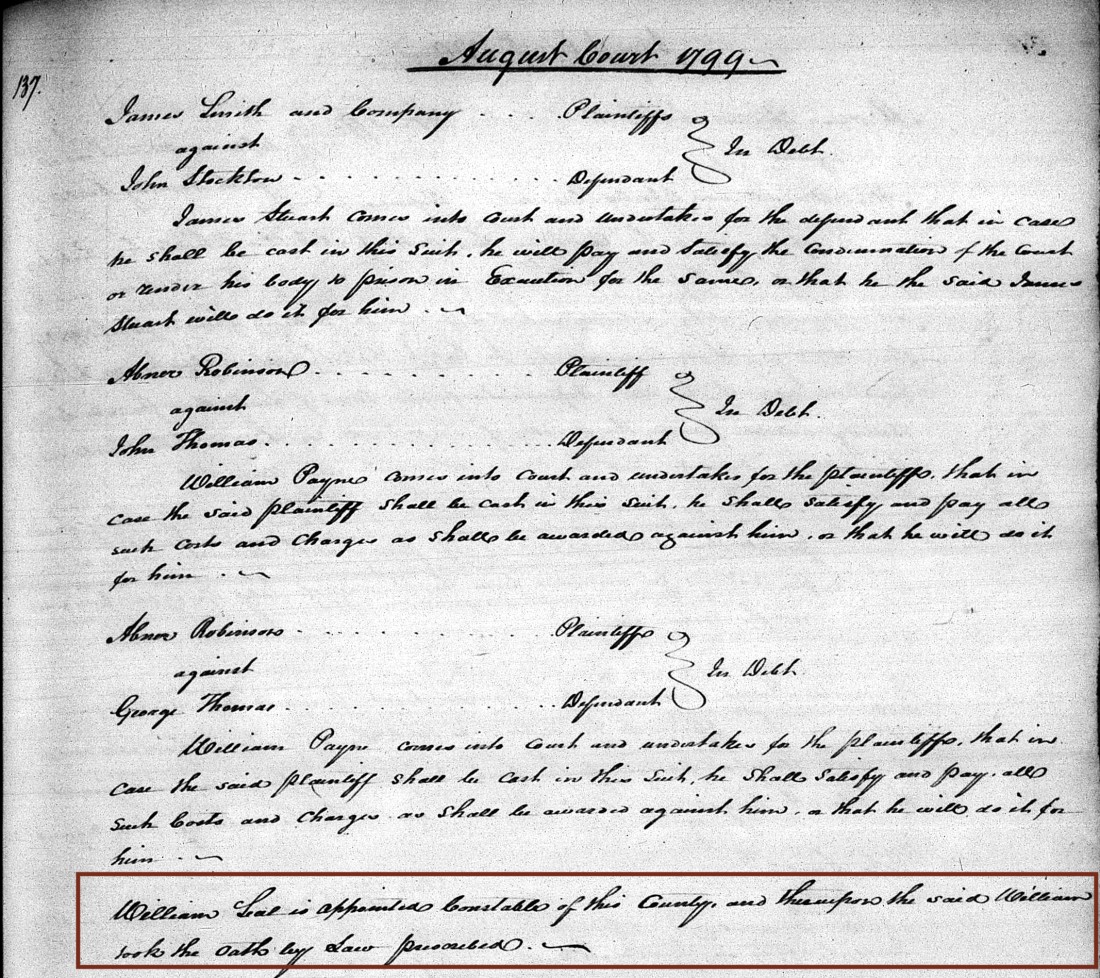 August Court 1799
137.
James Smith and Company . . . Plaintiffs
against
In Debt.
John Stockton . . . . . . . . . . . . . Defendant
James Stuart comes into Court and undertakes for the defendant that in case
he shall be cast in this Suit, he will pay and Satisfy the Condemnation of the Court
or render his body to prison in Execution for the same, or that he the said James
Stuart will do it for him .
Abner Robinson . . . . . . . . . . . Plaintiff
against
In Debt.
John Thomas . . . . . . . . . . . . . Defendant
William Payne comes into Court and undertakes for the plaintiff, that in
case the said plaintiff shall be cast in this Suit, he shall satisfy and pay all
such Costs and Charges as shall be awarded against him, or that he will do it
for him .
Abner Robinson . . . . . . . . . . . Plaintiff
against
In Debt.
George Thomas . . . . . . . . . . . . Defendant
William Payne comes into Court and undertakes for the plaintiff, that in
case the said plaintiff shall be cast in this Suit, he shall satisfy and pay all
such Costs and Charges as shall be awarded against him, or that he will do it for
him .
William Seal is appointed Constable of this County, and thereupon the said William
took the oath by Law prescribed .